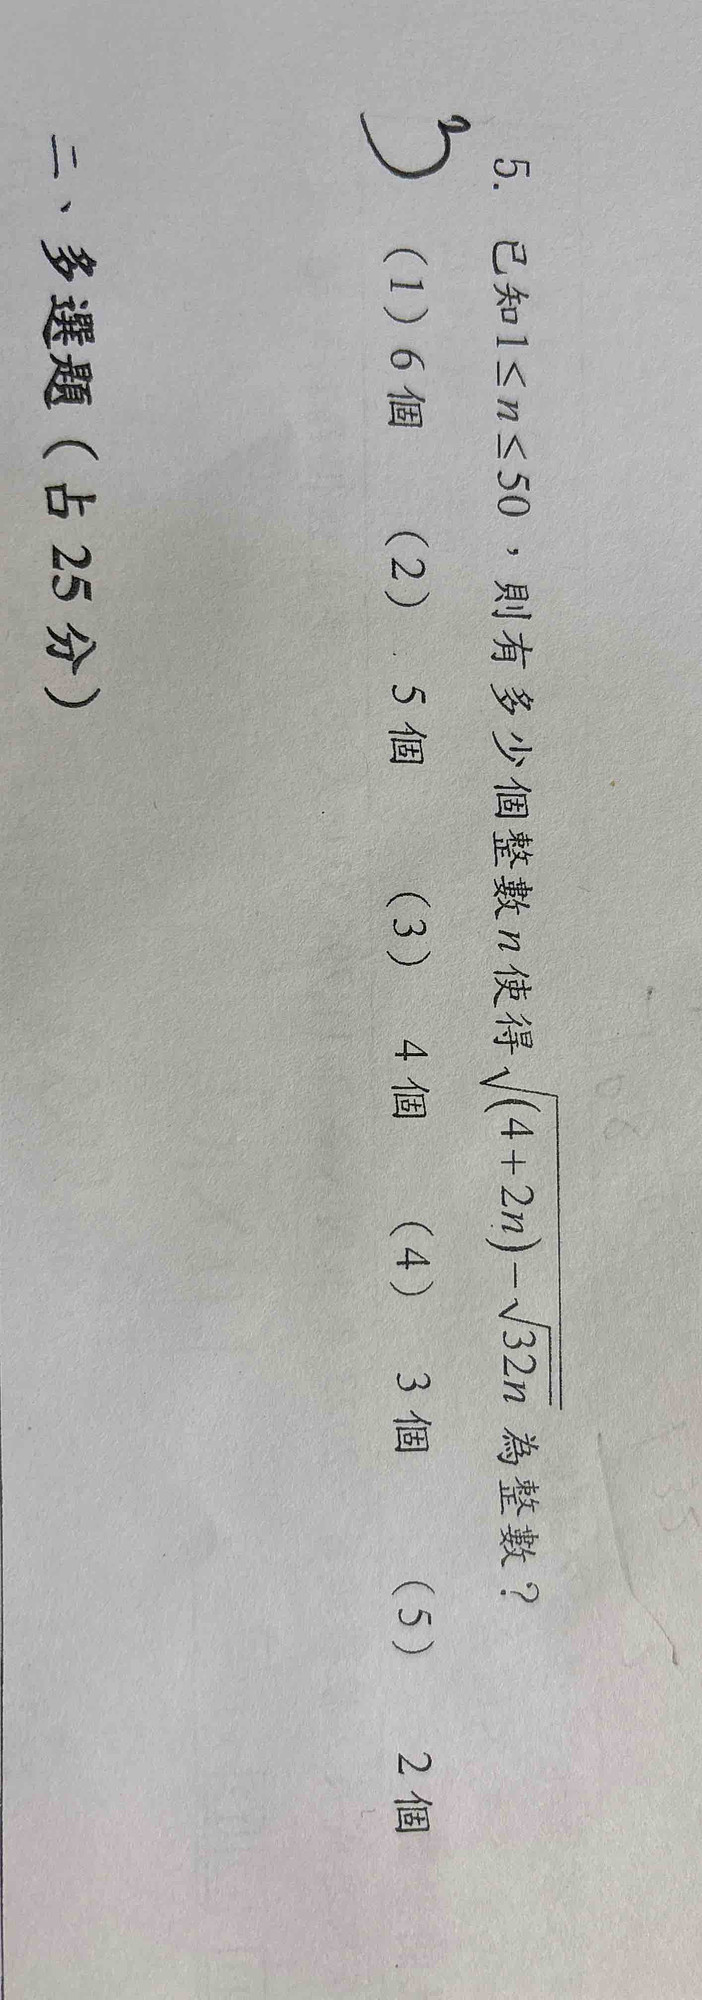 5. 已知1≤n≤50，則有多少個整數n使得√((4+2n)-√32n)為整數？
3 (1) 6個 (2) 5個 (3) 4個 (4) 3個 (5) 2個
二、多選題（占25分）